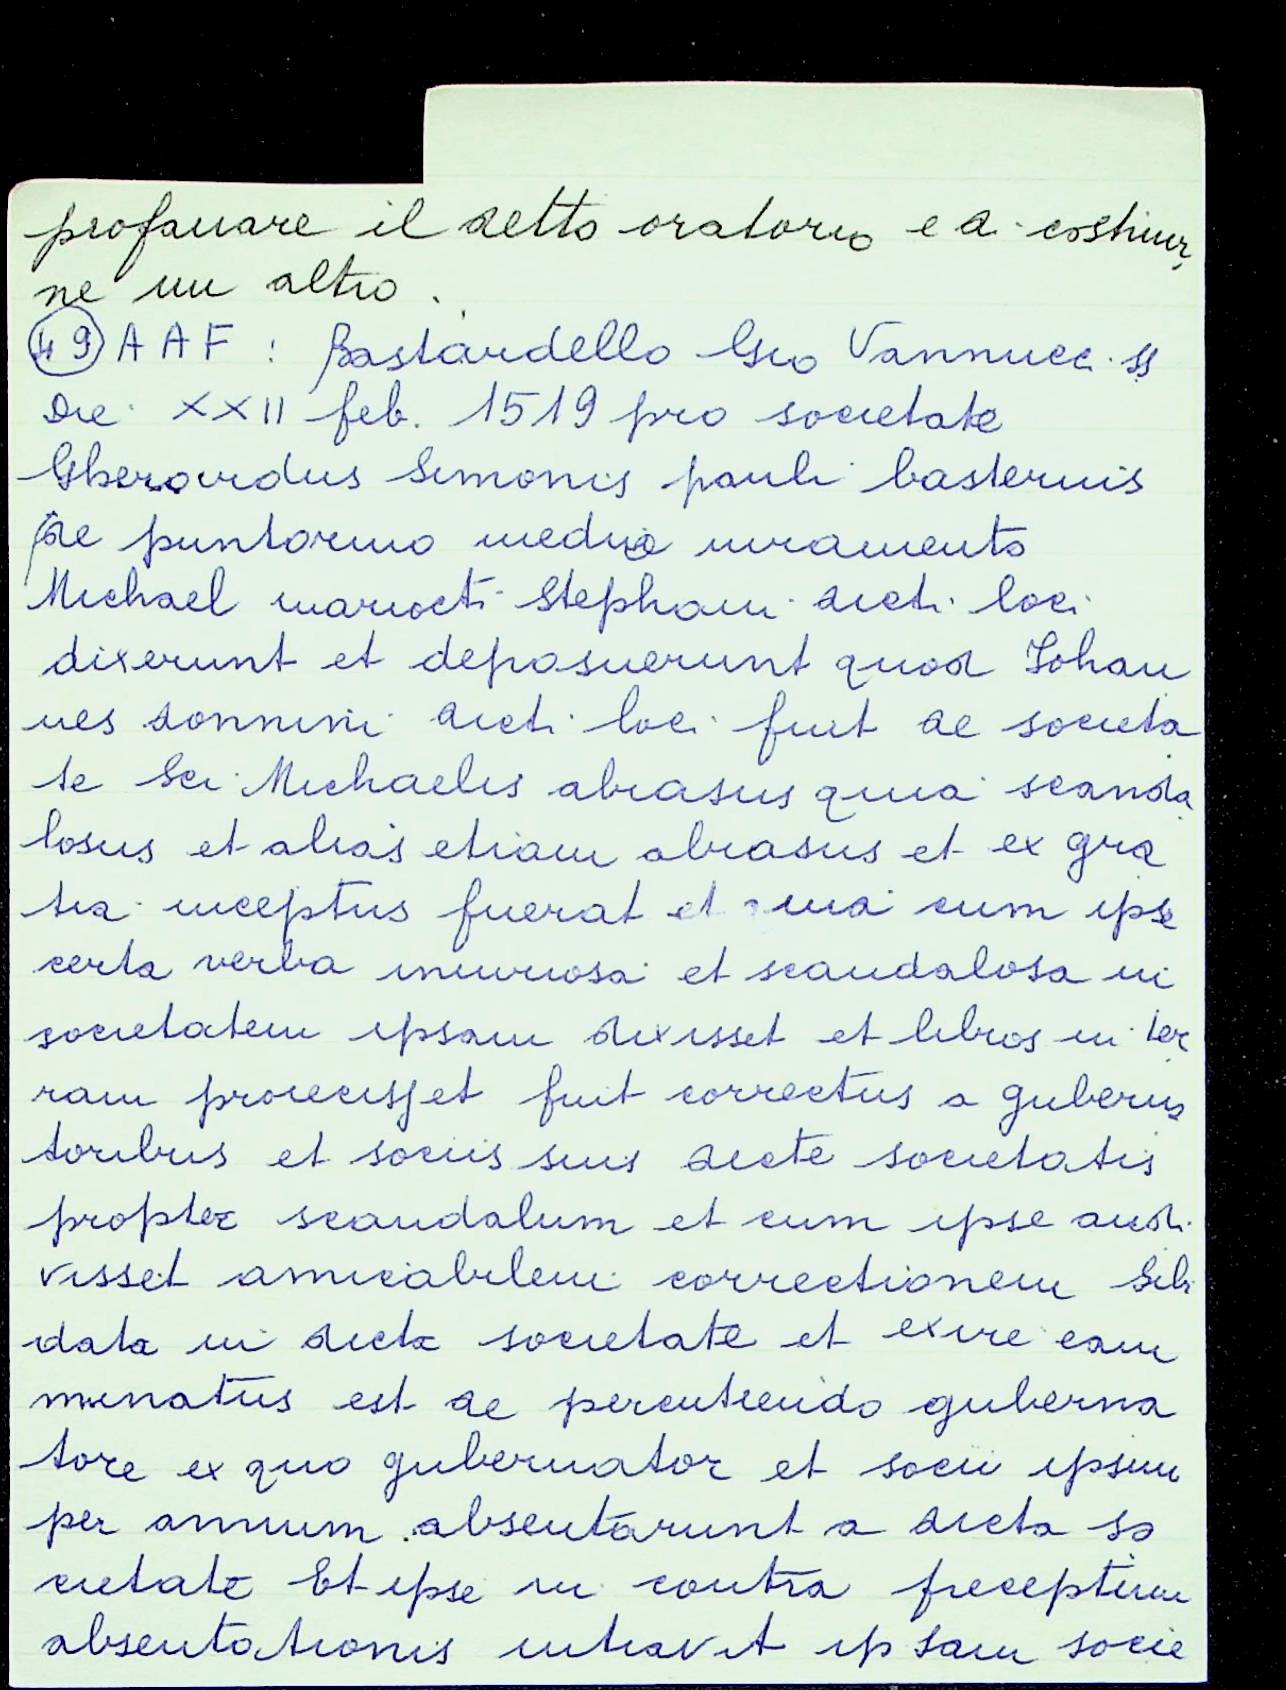 profanare il detto oratorio e di costruir
ne un altro.
49 AAF: Bastardello Gio Vannucci ss
Die XXII feb. 1519 pro societate
Gherardus Simonis pauli basternis
de puntormo medio iuramento
Michael mariocti Stephani dicti loci
dixerunt et deposuerunt quod Johan
nes donnini dicti loci fuit de societa
te Sci Michaelis abrasus quia scanda
losus et alias etiam abrasus et ex gra
tia inceptus fuerat et cum ipse
certa verba iniuriosa et scandalosa in
societatem ipsam dixisset et libros in ter
ram proiecisset fuit correctus a guberna
toribus et sociis suis dicte societatis
propter scandalum et cum ipse audi
visset amicabilem correctionem sibi
data in dicta societate et exire eam
minatus est de percutiendo guberna
tore ex quo gubernator et socii ipsum
per annum absentarunt a dicta so
cietate Et ipse in contra preceptum
absentationis intravit ipsam socie